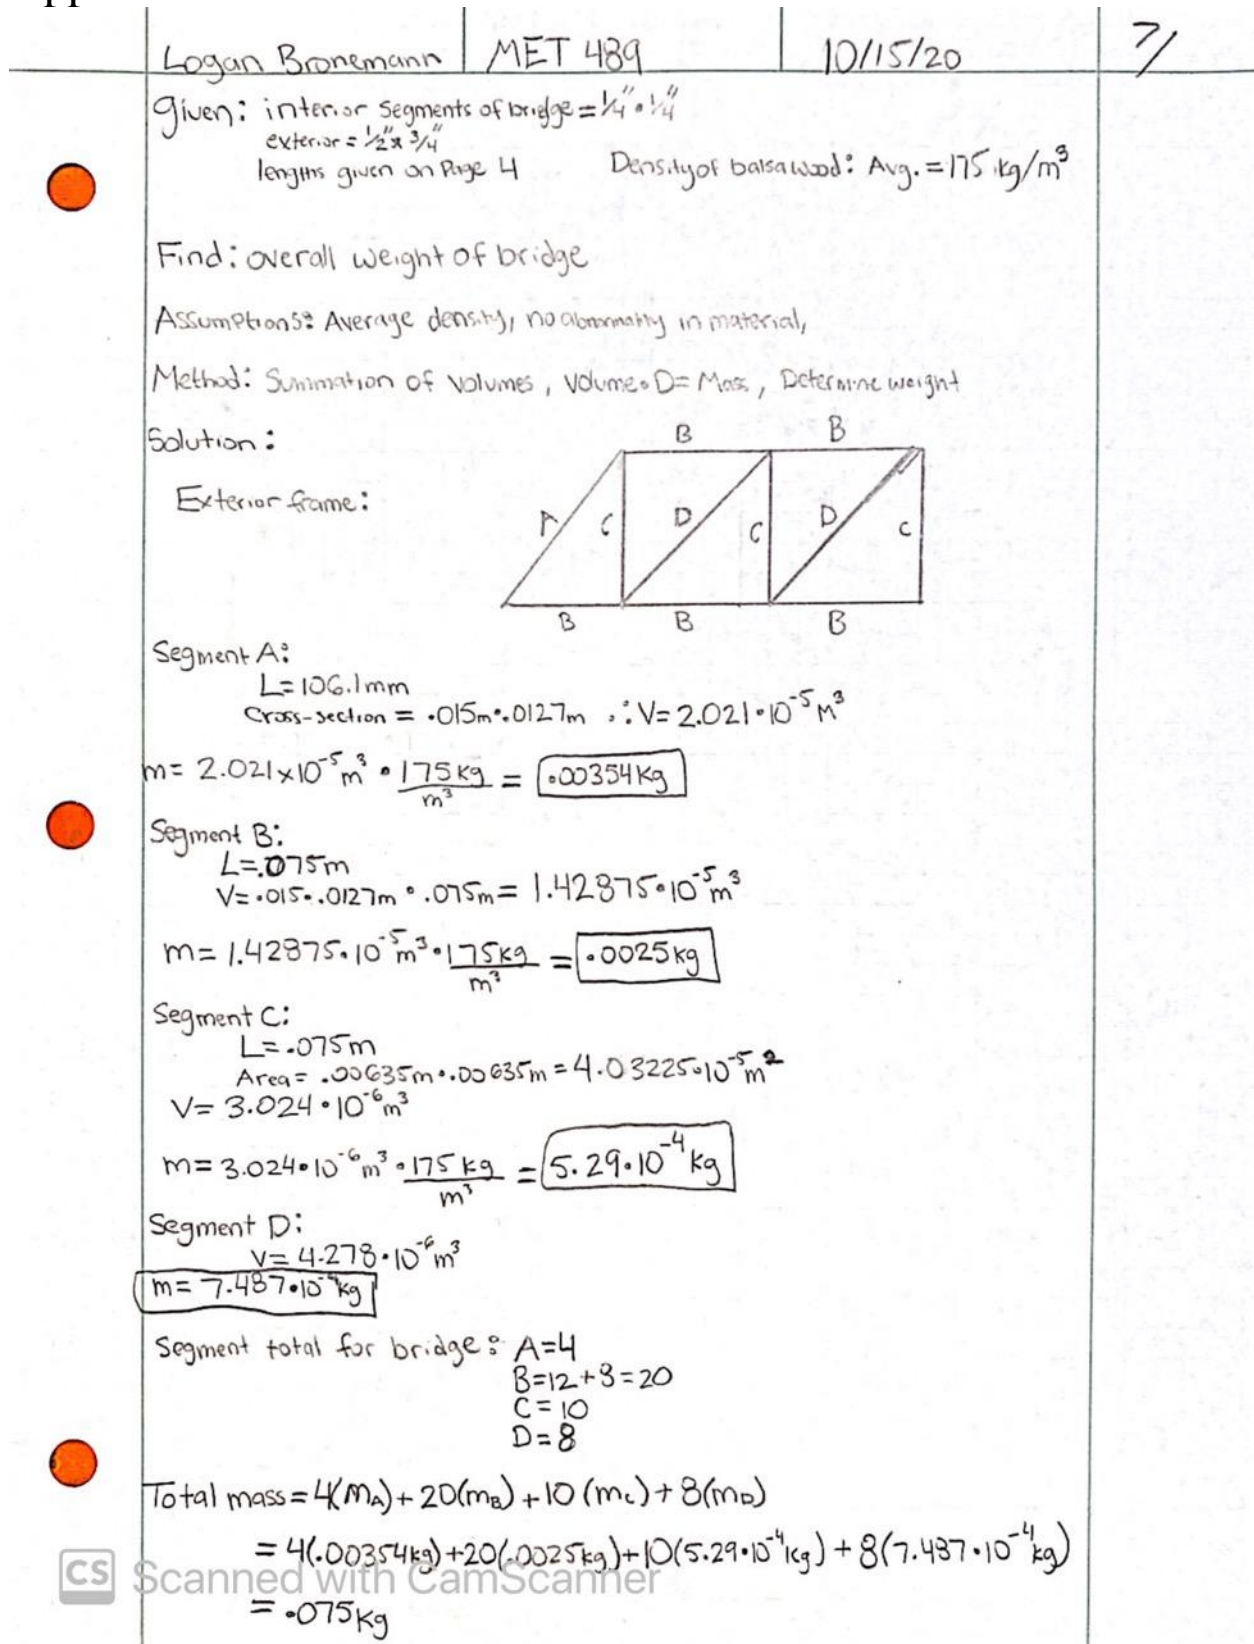 Logan Bronemann MET 489 10/15/20 7/
Given: interior segments of bridge = 1/4" • 1/4"
exterior = 1/2" x 3/4"
lengths given on Page 4 Density of balsa wood: Avg. = 175 kg/m³
Find: overall weight of bridge
Assumptions: Average density, no abnormality in material,
Method: Summation of volumes, volume • D = Mass, Determine weight
Solution:
B B
Exterior frame:
A C D C D C
B B B
Segment A:
L = 106.1mm
Cross-section = .015m • .0127m ∴ V = 2.021 • 10⁻⁵ m³
m = 2.021 x 10⁻⁵ m³ • 175 kg/m³ = .00354 kg
Segment B:
L = .075m
V = .015 • .0127m • .075m = 1.42875 • 10⁻⁵ m³
m = 1.42875 • 10⁻⁵ m³ • 175 kg/m³ = .0025 kg
Segment C:
L = .075m
Area = .00635m • .00635m = 4.03225 • 10⁻⁵ m²
V = 3.024 • 10⁻⁶ m³
m = 3.024 • 10⁻⁶ m³ • 175 kg/m³ = 5.29 • 10⁻⁴ kg
Segment D:
V = 4.278 • 10⁻⁶ m³
m = 7.487 • 10⁻⁴ kg
Segment total for bridge: A = 4
B = 12 + 8 = 20
C = 10
D = 8
Total mass = 4(mA) + 20(mB) + 10(mC) + 8(mD)
= 4(.00354kg) + 20(.0025kg) + 10(5.29 • 10⁻⁴ kg) + 8(7.487 • 10⁻⁴ kg)
CS Scanned with CamScanner
= .075 kg